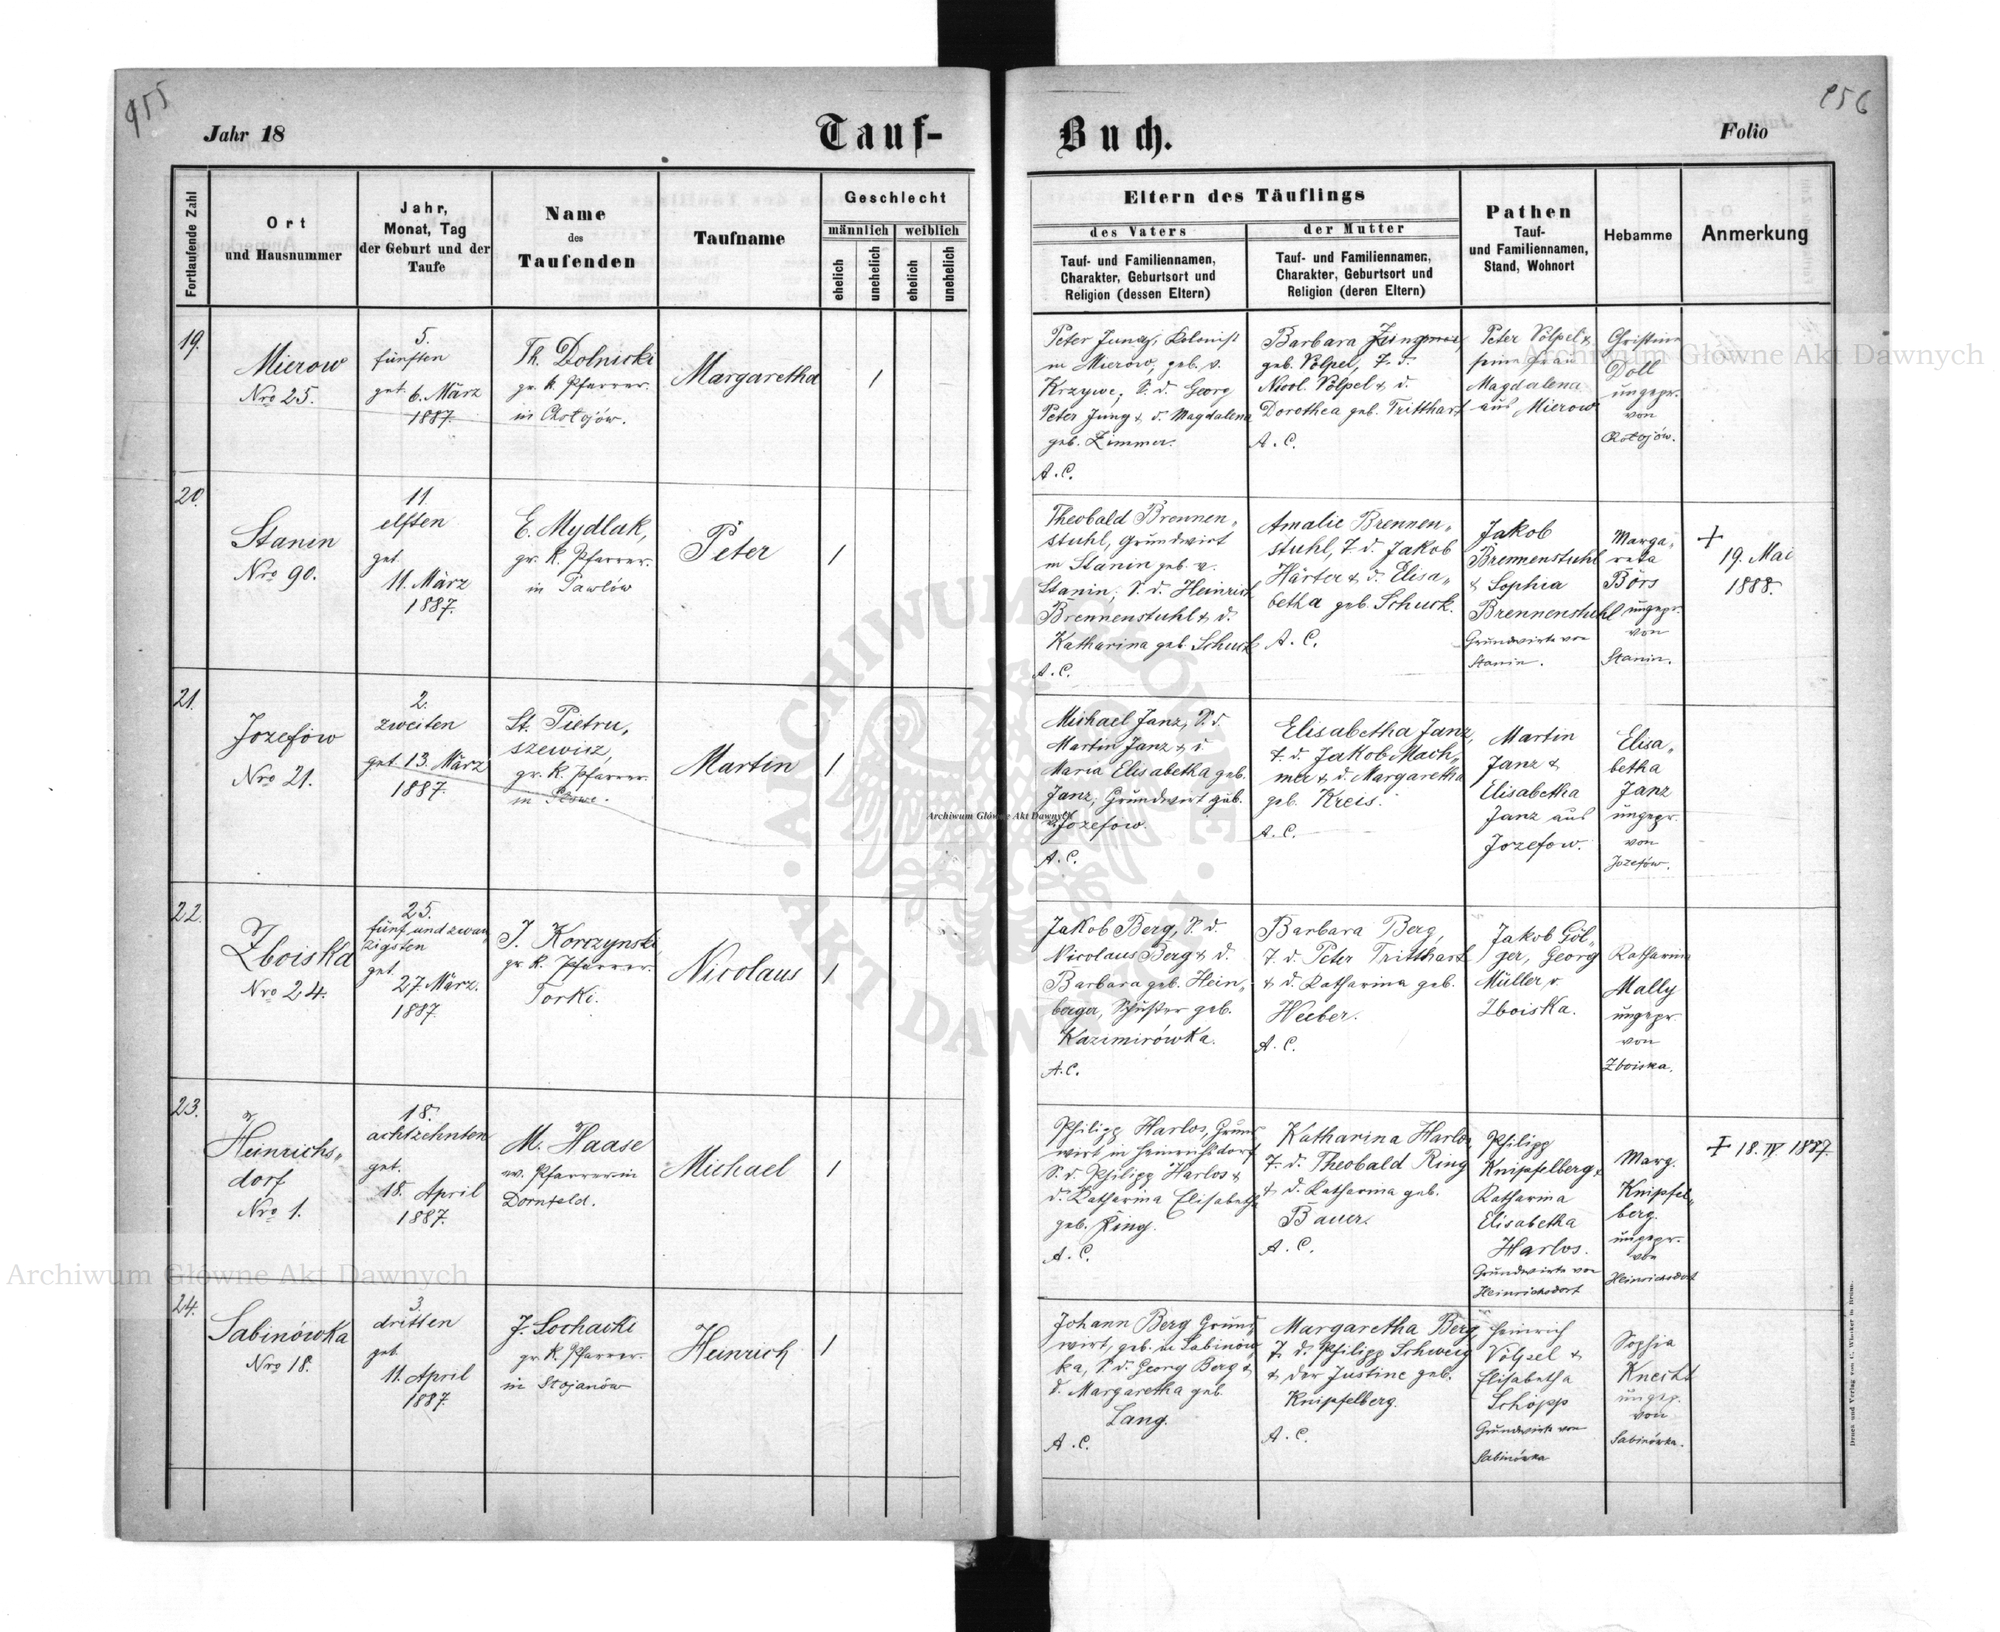 955
956
Jahr 18
Tauf-
Buch.
Folio
Fortlaufende Zahl
Ort
und Hausnummer
Jahr,
Monat, Tag
der Geburt und der
Taufe
Name
des
Taufenden
Taufname
Geschlecht
männlich
weiblich
ehelich
unehelich
ehelich
unehelich
Eltern des Täuflings
des Vaters
Tauf- und Familiennamen,
Charakter, Geburtsort und
Religion (dessen Eltern)
der Mutter
Tauf- und Familiennamen,
Charakter, Geburtsort und
Religion (deren Eltern)
Pathen
Tauf-
und Familiennamen,
Stand, Wohnort
Hebamme
Anmerkung
19.
Mierow
Nro 25.
5.
fünften
get. 6. März
1887.
Th. Dolnicki
gr. k. Pfarrer.
in
Margaretha
1
Peter Jung, Kolonist
in Mierow, geb. v.
Krzywe, S. d. Georg
Peter Jung & d. Magdalena
geb. Zimmer.
A. C.
Barbara
geb. Völpel, T. d.
Nicol. Völpel & d.
Dorothea geb. Tritthart
A. C.
Peter Völpel &
seine Frau
Magdalena
aus Mierow
Christine
Doll
ungepr.
von
20.
Stanin
Nro 90.
11
elften
get.
11. März
1887.
E. Mydlak,
gr. k. Pfarrer.
in Pawlów
Peter
1
Theobald Brennen„
stuhl, Grundwirt
in Stanin geb. v.
Stanin, S. d. Heinrich
Brennenstuhl & d.
Katharina geb. Schuck
A. C.
Amalie Brennen„
stuhl, T. d. Jakob
Härter & d. Elisa„
betha geb. Schuck.
A. C.
Jakob
Brennenstuhl
& Sophia
Brennenstuhl
Grundwirte von
Stanin.
Marga„
reta
Börs
ungepr.
von
Stanin.
+
19. Mai
1888.
21.
Jozefow
Nro 21.
2.
zweiten
get. 13. März
1887.
St. Pietru„
szewicz,
gr. k. Pfarrer.
in
Martin
1
Michael Janz, S. d.
Martin Janz & d
Maria Elisabetha geb.
Janz, Grundwirt geb.
v. Jozefow.
A. C.
Elisabetha Janz,
T. d. Jakob Mach„
mer & d. Margaretha
geb. Kreis.
A. C.
Martin
Janz &
Elisabetha
Janz aus
Jozefow.
Elisa„
betha
Janz
ungepr.
von
Jozefów.
22.
Zboiska
Nro 24.
25.
fünf und zwan„
zigsten
get.
27. März.
1887.
J. Korczynski
gr. k. Pfarrer.
Torki.
Nicolaus
1
Jakob Berg, S. d.
Nicolaus Berg & d.
Barbara geb. Hein„
berger, Schuster geb.
Kazimirówka.
A. C.
Barbara Berg,
T. d. Peter Tritthart
& d. Katharina geb.
Weber.
A. C.
Jakob Göl„
zer, Georg
Müller v.
Zboiska.
Katharina
Mally
ungepr.
von
Zboiska.
23.
Heinrichs„
dorf
Nro 1.
18.
achtzehnten
get.
18. April
1887.
M. Haase
ev. Pfarrer in
Dornfeld.
Michael
1
Philipp Harlos, Grund„
wirt in Heinrichsdorf
S. d. Philipp Harlos &
d. Katharina Elisabetha
geb. Ring.
A. C.
Katharina Harlos,
T. d. Theobald Ring
& d. Katharina geb.
Bauer.
A. C.
Philipp
Knipfelberg &
Katharina
Elisabetha
Harlos.
Grundwirte von
Heinrichsdorf
Marg.
Knipfel„
berg.
ungepr.
von
Heinrichsdorf
+ 18. IV 1887.
24.
Sabinówka
Nro 18.
3
dritten
get.
11. April
1887.
J. Sochacki
gr. k. Pfarrer.
in Stojanów
Heinrich
1
Johann Berg Grund„
wirt, geb. in Sabinów„
ka, S. d. Georg Berg &
d. Margaretha geb.
Lang.
A. C.
Margaretha Berg
T. d. Philipp Schweig
& der Justine geb.
Knipfelberg.
A. C.
Heinrich
Völpel &
Elisabetha
Schöpp
Grundwirte von
Sabinówka
Sophia
Knecht
ungep.
von
Sabinówka.
Archiwum Główne Akt Dawnych
Archiwum Główne Akt Dawnych
Archiwum Główne Akt Dawnych
ARCHIWUM GŁÓWNE AKT DAWNYCH